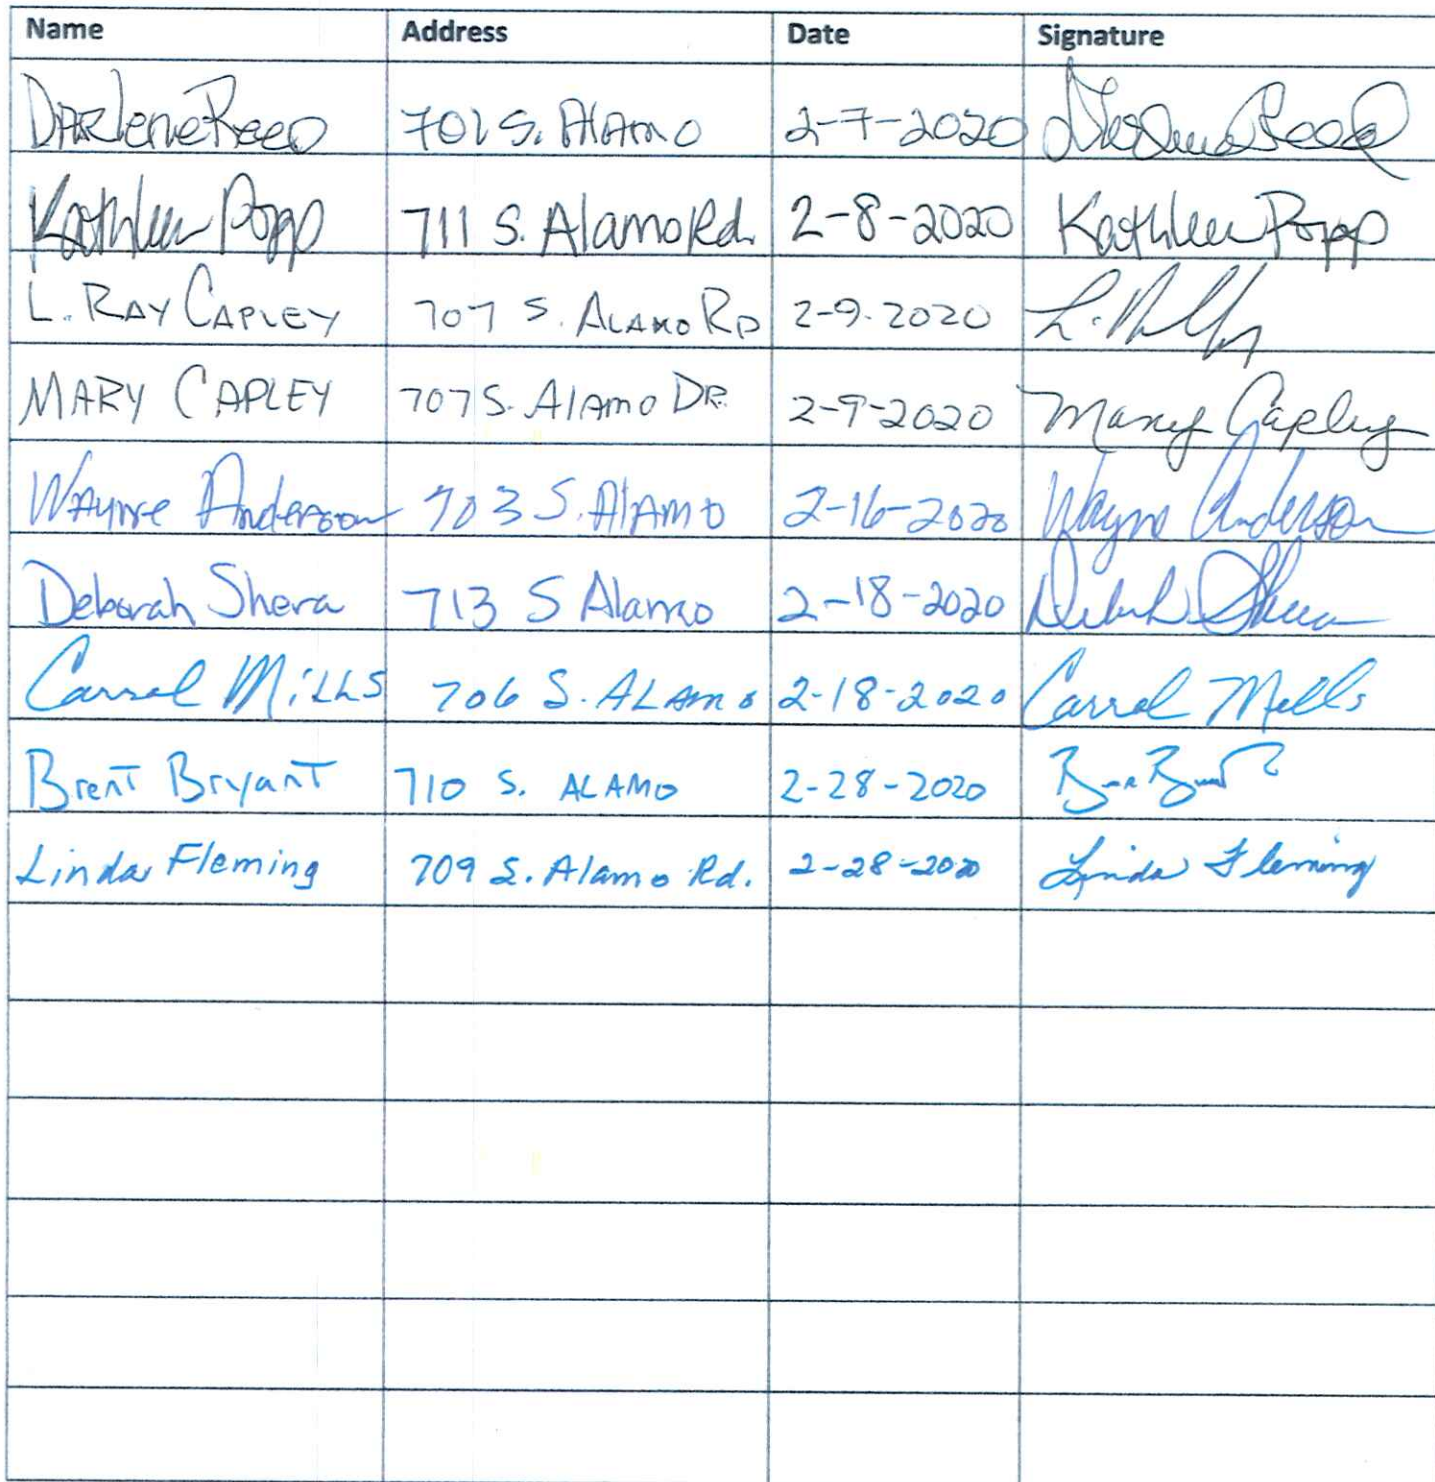 Name Address Date Signature
Darlene Reed 701 S. Alamo 2-7-2020 Darlene Reed
Kathleen Popp 711 S. Alamo Rd. 2-8-2020 Kathleen Popp
L. RAY CAPLEY 707 S. ALAMO RD 2-9-2020 L.
MARY CAPLEY 707 S. Alamo DR. 2-9-2020 Mary Capley
Wayne Anderson 703 S. Alamo 2-16-2020 Wayne Anderson
Deborah Shera 713 S Alamo 2-18-2020 Deborah Shera
Carrol Mills 706 S. ALAmo 2-18-2020 Carrol Mills
Brent Bryant 710 S. ALAMO 2-28-2020
Linda Fleming 709 S. Alamo Rd. 2-28-2020 Linda Fleming